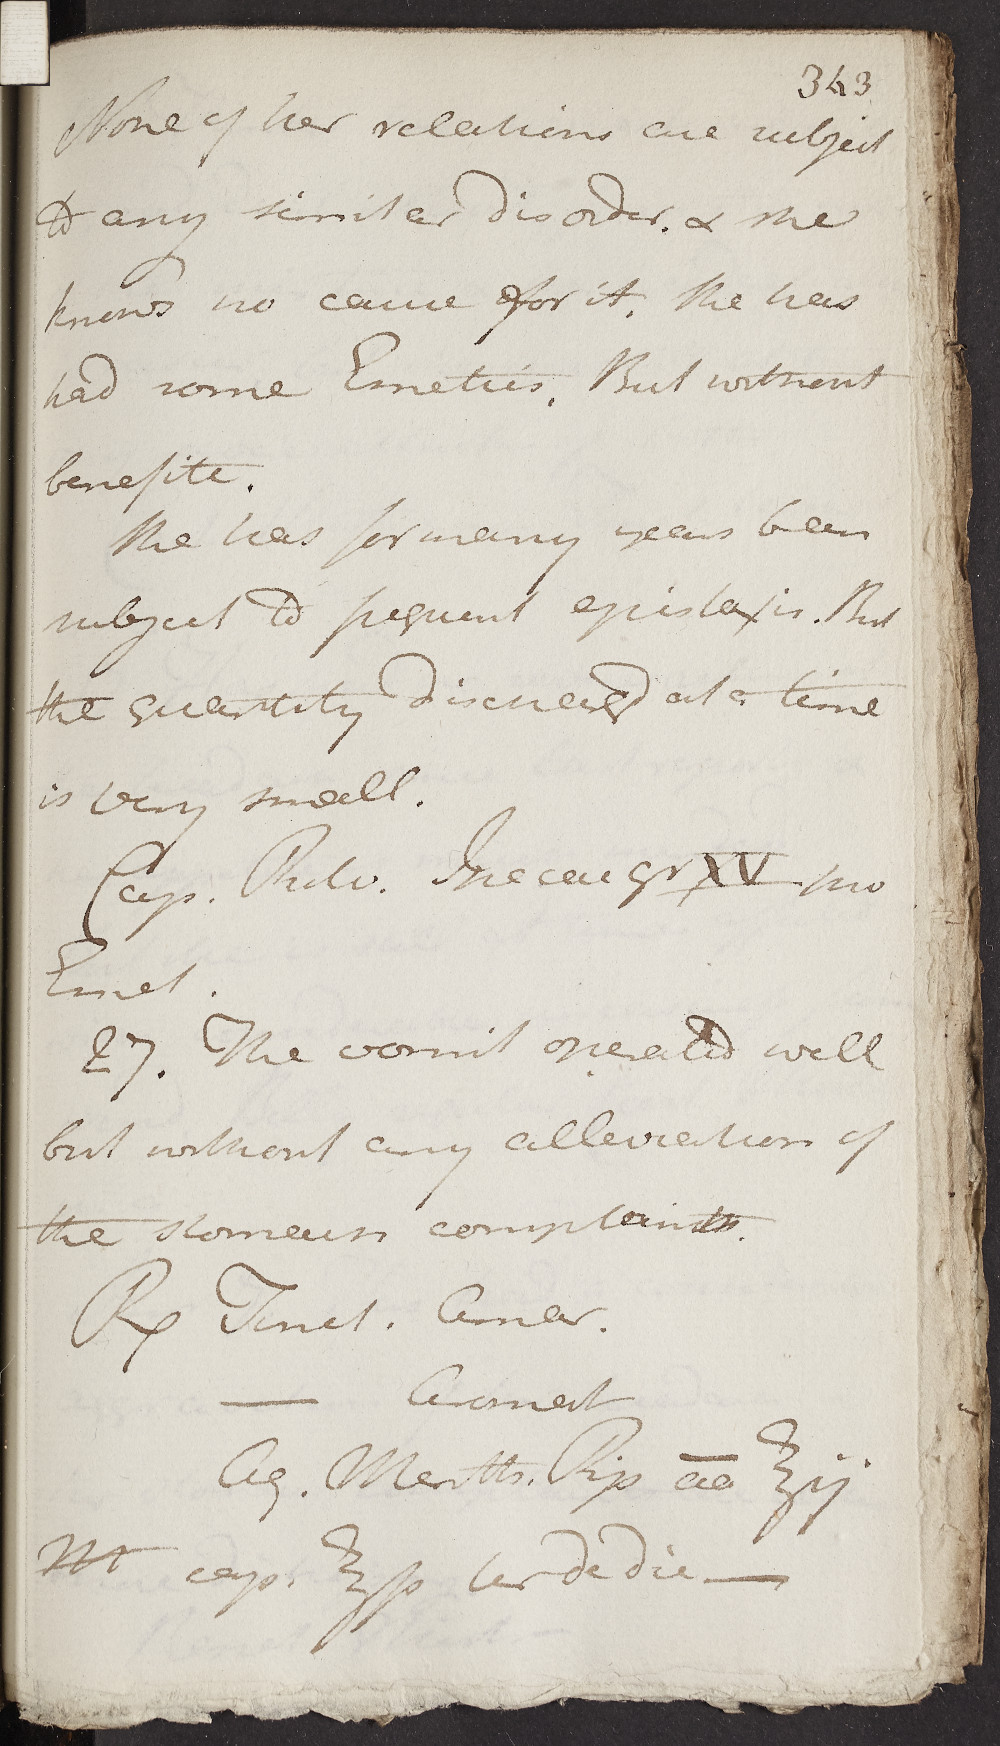 343
None of her relations are subject
to any similar disorder. & she
knows no cause for it. She has
had some Emetics. But without
benefite.
She has for many years been
subject to frequent epistaxis. But
the quantity discharged at a time
is very small.
Cap. Pulv. Ipecac gr XV pro
Emet.
27. The vomit operated well
but without any alleviation of
the stomach complaints.
Rx Tinct. Amar.
— Aromat
Aq. Menth. Pip aa ℥ij
M cap. ℥ss ter de die —